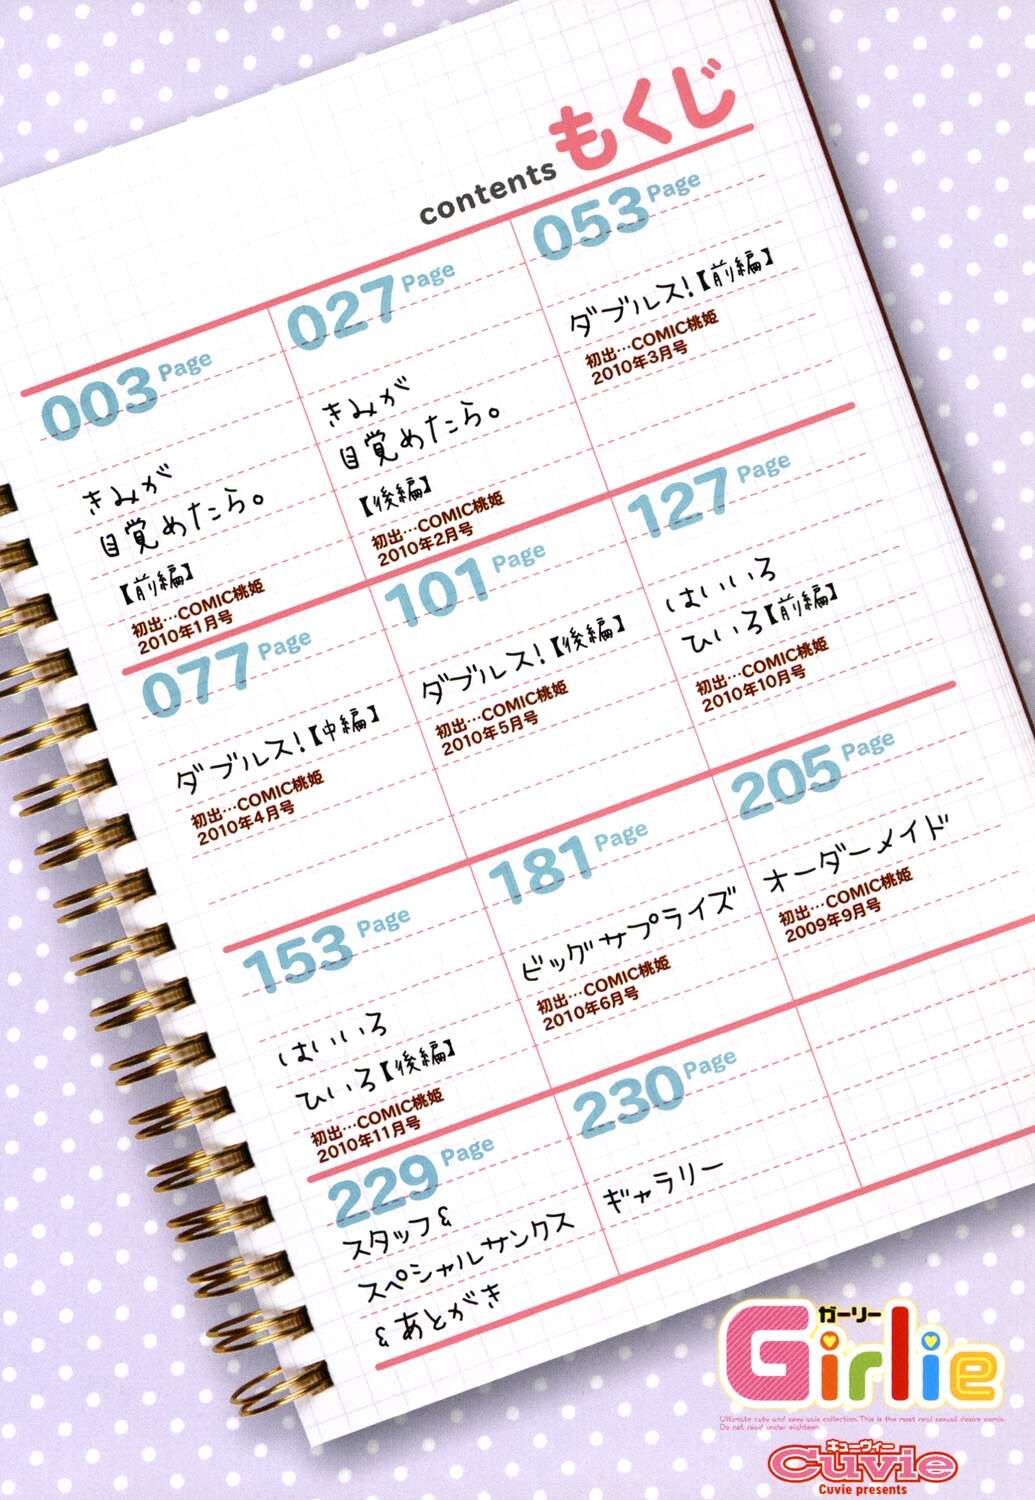 もくじ
contents
003 Page
きみが
目覚めたら。
【前編】
初出…COMIC桃姫
2010年1月号
027 Page
きみが
目覚めたら。
【後編】
初出…COMIC桃姫
2010年2月号
053 Page
ダブルス!【前編】
初出…COMIC桃姫
2010年3月号
077 Page
ダブルス!【中編】
初出…COMIC桃姫
2010年4月号
101 Page
ダブルス!【後編】
初出…COMIC桃姫
2010年5月号
127 Page
はいいろ
ひいろ【前編】
初出…COMIC桃姫
2010年10月号
153 Page
はいいろ
ひいろ【後編】
初出…COMIC桃姫
2010年11月号
181 Page
ビッグサプライズ
初出…COMIC桃姫
2010年6月号
205 Page
オーダーメイド
初出…COMIC桃姫
2009年9月号
229 Page
スタッフ&
スペシャルサンクス
&あとがき
230 Page
ギャラリー
ガーリー
Girlie
Ultimate cute and sexy gals collection. This is the most real sexual desire comix.
Do not read under eighteen.
キューヴィー
Cuvie
Cuvie presents